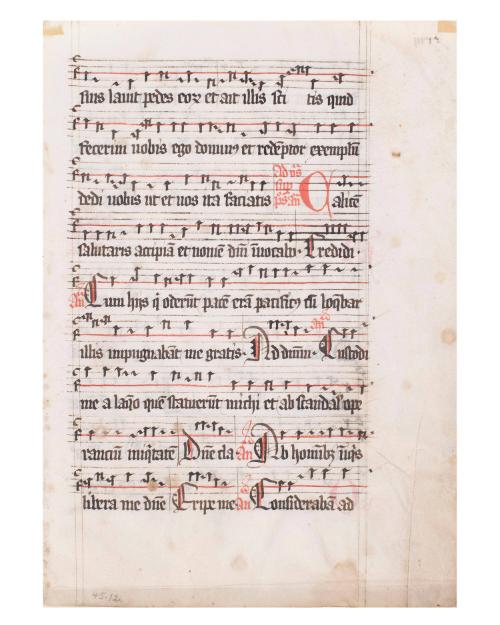 suis lauit pedes eoꝝ et ait illis sci tis quid
fecerim uobis ego dominus et redēptor exemplū
dedi uobis ut et uos ita faciatis Calicē
salutaris accipiā et nomē dn̄i inuocabo. Credidi.
an̄ Cum hijs q̄ oderūt pacē erā pacificus loqbar
illis impugnabāt me gratis. Ad dn̄um. an̄ Custodi
me a laqo quē statuerūt michi et ab scandal ope
rancium iniqtatē Dn̄e cla an̄ Ab hominibꝫ iniqs
libera me dn̄e Eripe me an̄ Considerabā ad
45.12.